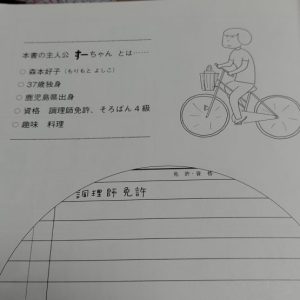 本書の主人公 すーちゃん とは……
○ 森本好子（もりもと よしこ）
○ 37歳独身
○ 鹿児島県出身
○ 資格 調理師免許、そろばん4級
○ 趣味 料理
免許・資格
調理師免許